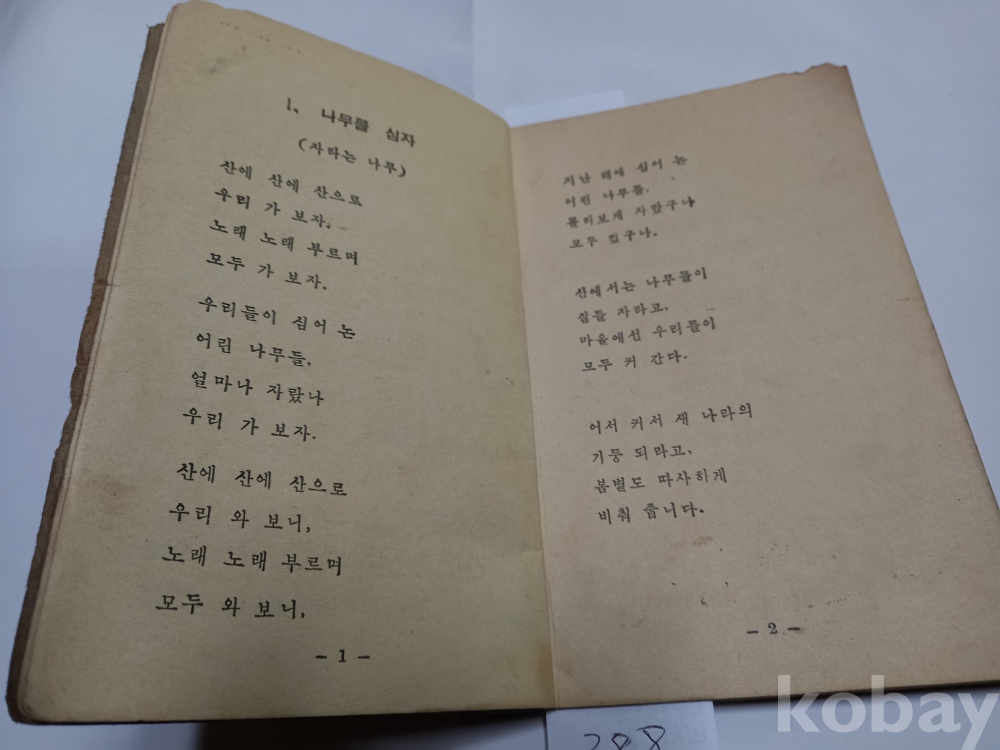 1. 나무를 심자
(자라는 나무)
산에 산에 산으로
우리 가 보자.
노래 노래 부르며
모두 가 보자.
우리들이 심어 논
어린 나무들,
얼마나 자랐나
우리 가 보자.
산에 산에 산으로
우리 와 보니,
노래 노래 부르며
모두 와 보니,
- 1 -
지난 해에 심어 논
어린 나무들.
몰라보게 자랐구나
모두 컸구나.
산에서는 나무들이
잘들 자라고,
마을에선 우리들이
모두 커 간다.
어서 커서 새 나라의
기둥 되라고,
봄볕도 따사하게
비춰 줍니다.
- 2 -
208
kobay